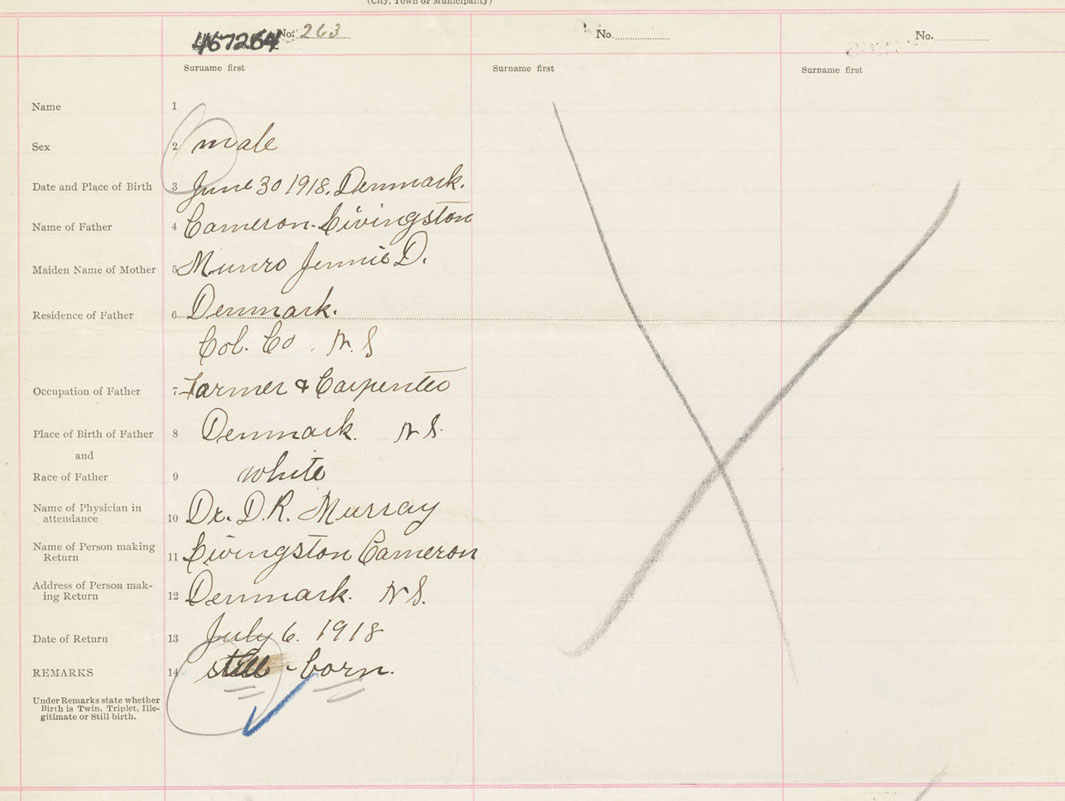 (City, Town or Municipality)
467264 No. 263 No. No.
Surname first Surname first Surname first
Name 1
Sex 2 male
Date and Place of Birth 3 June 30 1918. Denmark.
Name of Father 4 Cameron. Livingston
Maiden Name of Mother 5 Munro Jennie D.
Residence of Father 6 Denmark.
Col. Co. N.S
Occupation of Father 7 Farmer & Carpenter
Place of Birth of Father 8 Denmark. N S.
and
Race of Father 9 white
Name of Physician in
attendance 10 Dr. D.R. Murray
Name of Person making
Return 11 Livingston Cameron
Address of Person mak-
ing Return 12 Denmark. N S.
Date of Return 13 July 6. 1918
REMARKS 14 still-born.
Under Remarks state whether
Birth is Twin, Triplet, Ille-
gitimate or Still birth.